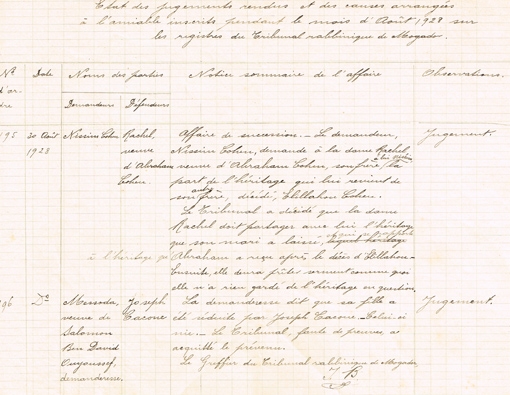 Etat des jugements rendus et des causes arrangées
à l'amiable inscrits pendant le mois d'Août 1928 sur
les registres du Tribunal rabbinique de Mogador.
Nº
d'or.
dre
Date
Noms des parties
Notice sommaire de l'affaire
Observations.
Demandeurs
Défendeurs
95
30 Août
1928
Nissim Cohen
Rachel,
veuve
d'Abraham
Cohen.
Affaire de succession. - Le demandeur,
Nissim Cohen, demande à la dame Rachel,
veuve d'Abraham Cohen, son frère, la
part de l'héritage qui lui revient de
son autre frère, décédé, Cohen.
Le Tribunal a décidé que la dame
Rachel doit partager avec lui l'héritage
que son mari a laissé,
à l'héritage qu'Abraham a reçu après le décès d'
Ensuite, elle devra prêter serment comme quoi
elle n'a rien gardé de l'héritage en question.
Jugement.
96
Dº
Messoda,
veuve de
Salomon
Ben David
Ouyoussef,
demanderesse.
Joseph
La demanderesse dit que sa fille a
été séduite par Joseph - Celui-ci
nie. - Le Tribunal, faute de preuves, a
acquitté le prévenu.
Le Greffier du Tribunal rabbinique de Mogador,
Jugement.